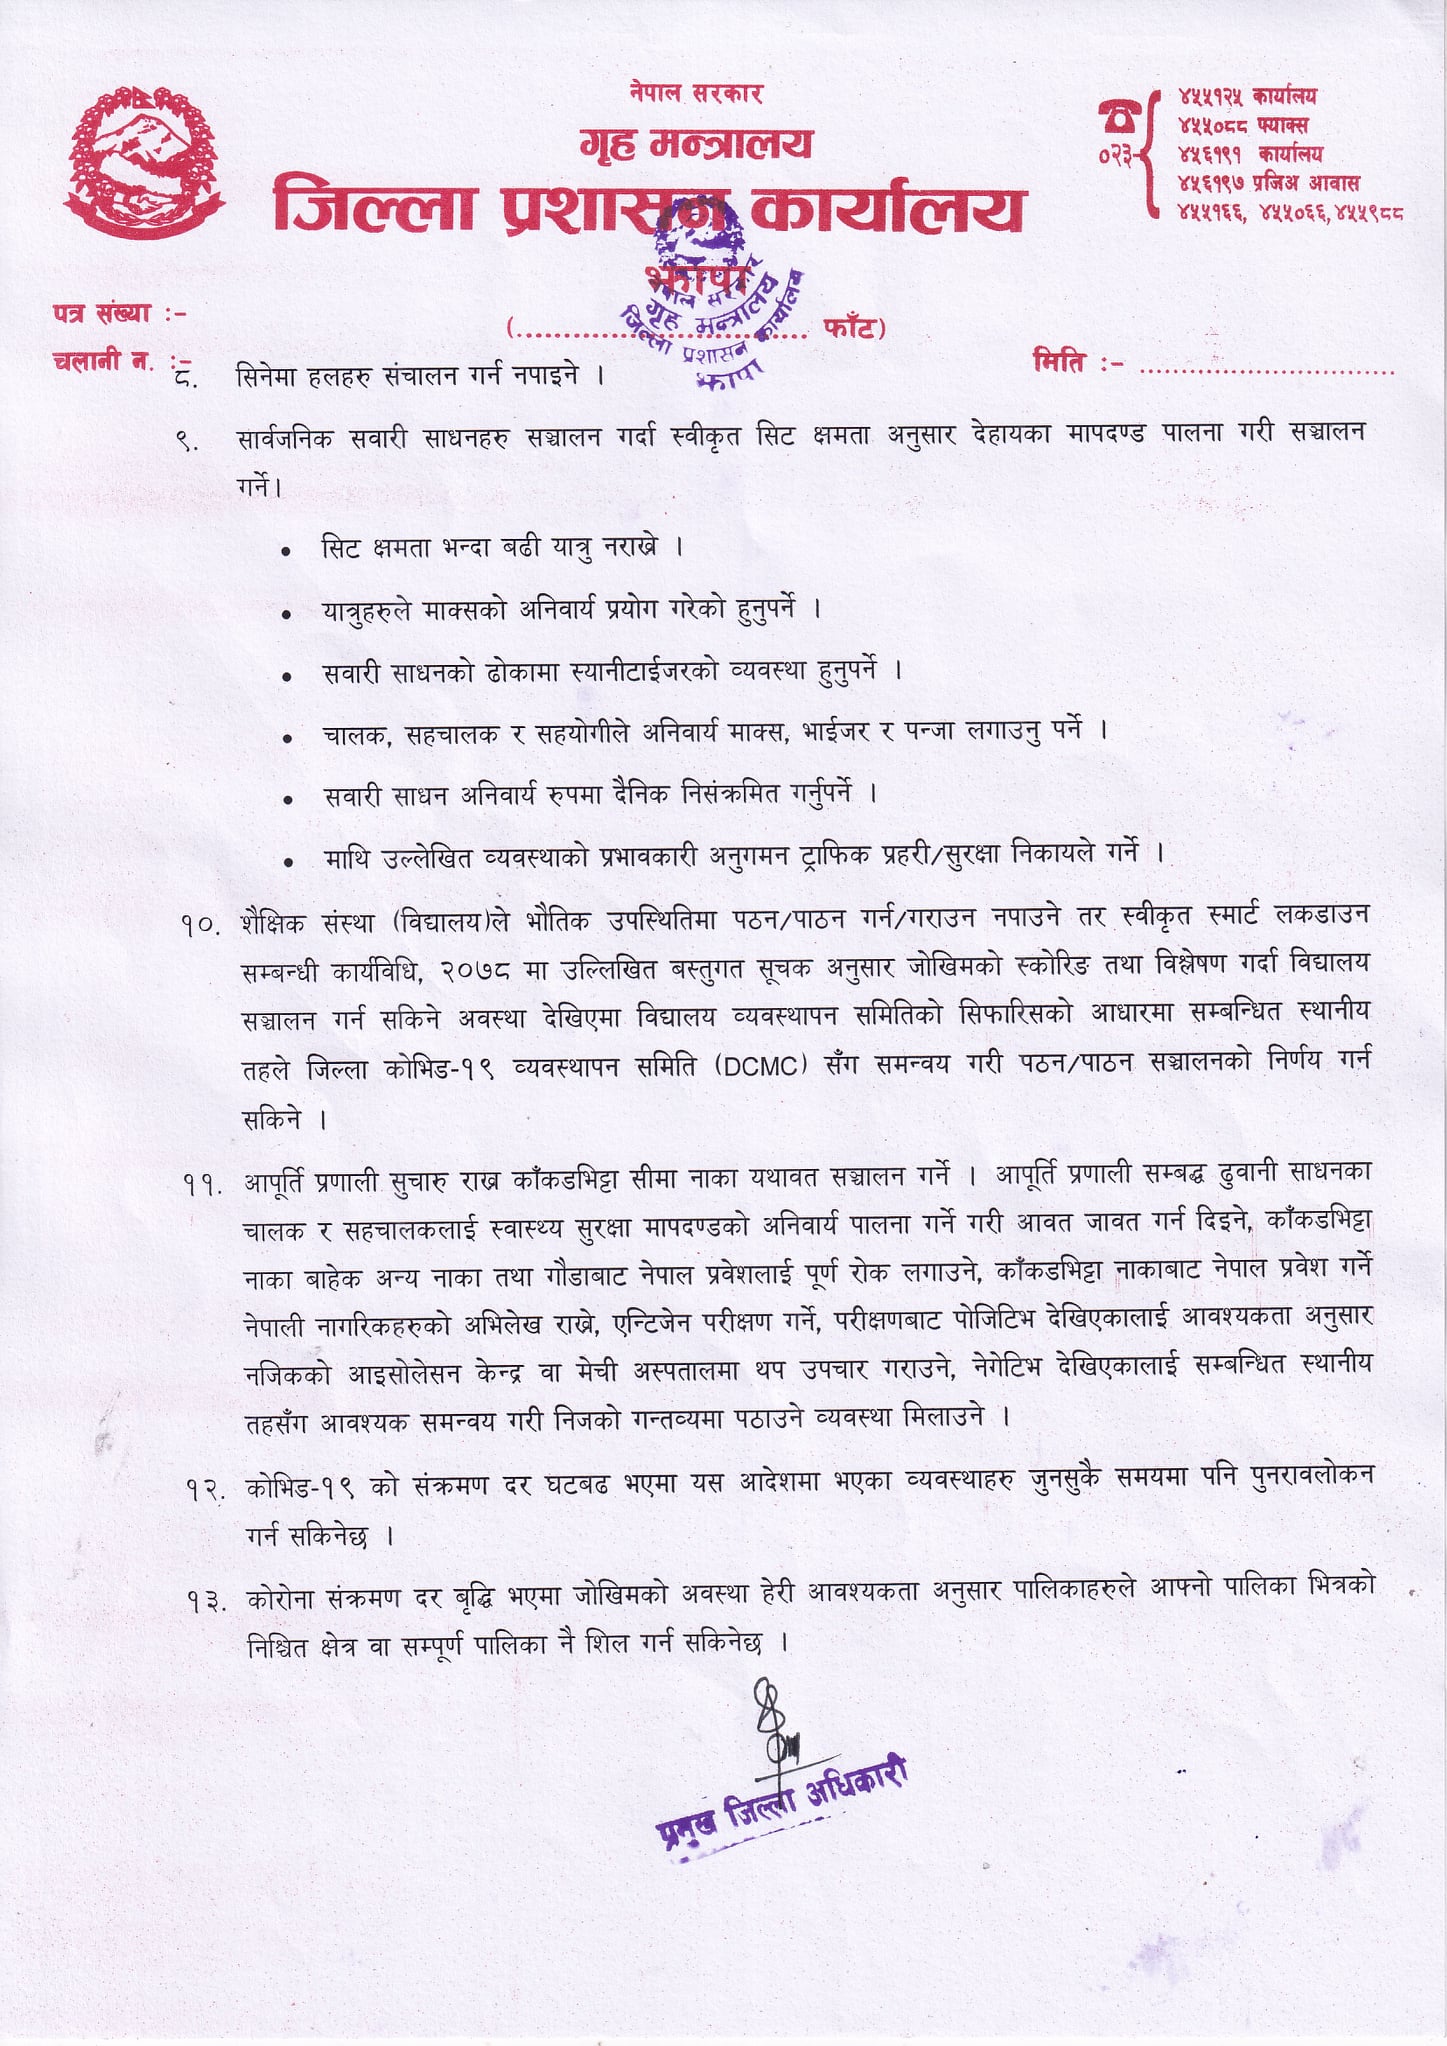 नेपाल सरकार
गृह मन्त्रालय
जिल्ला प्रशासन कार्यालय
झापा
०२३-
४५५१२५ कार्यालय
४५५०८८ फ्याक्स
४५६१९१ कार्यालय
४५६१९७ प्रजिअ आवास
४५५१६६, ४५५०६६,४५५९८८
नेपाल सरकार
गृह मन्त्रालय
जिल्ला प्रशासन कार्यालय
झापा
पत्र संख्या :-
(................................ फाँट)
चलानी न. :-
मिति :- ..............................
८. सिनेमा हलहरु संचालन गर्न नपाइने ।
९. सार्वजनिक सवारी साधनहरु सञ्चालन गर्दा स्वीकृत सिट क्षमता अनुसार देहायका मापदण्ड पालना गरी सञ्चालन
गर्ने।
• सिट क्षमता भन्दा बढी यात्रु नराख्ने ।
• यात्रुहरुले माक्सको अनिवार्य प्रयोग गरेको हुनुपर्ने ।
• सवारी साधनको ढोकामा स्यानीटाईजरको व्यवस्था हुनुपर्ने ।
• चालक, सहचालक र सहयोगीले अनिवार्य माक्स, भाईजर र पन्जा लगाउनु पर्ने ।
• सवारी साधन अनिवार्य रुपमा दैनिक निसंक्रमित गर्नुपर्ने ।
• माथि उल्लेखित व्यवस्थाको प्रभावकारी अनुगमन ट्राफिक प्रहरी/सुरक्षा निकायले गर्ने ।
१०. शैक्षिक संस्था (विद्यालय)ले भौतिक उपस्थितिमा पठन/पाठन गर्न/गराउन नपाउने तर स्वीकृत स्मार्ट लकडाउन
सम्बन्धी कार्यविधि, २०७८ मा उल्लिखित बस्तुगत सूचक अनुसार जोखिमको स्कोरिङ तथा विश्लेषण गर्दा विद्यालय
सञ्चालन गर्न सकिने अवस्था देखिएमा विद्यालय व्यवस्थापन समितिको सिफारिसको आधारमा सम्बन्धित स्थानीय
तहले जिल्ला कोभिड-१९ व्यवस्थापन समिति (DCMC) सँग समन्वय गरी पठन/पाठन सञ्चालनको निर्णय गर्न
सकिने ।
११. आपूर्ति प्रणाली सुचारु राख्न काँकडभिट्टा सीमा नाका यथावत सञ्चालन गर्ने । आपूर्ति प्रणाली सम्बद्ध ढुवानी साधनका
चालक र सहचालकलाई स्वास्थ्य सुरक्षा मापदण्डको अनिवार्य पालना गर्ने गरी आवत जावत गर्न दिइने, काँकडभिट्टा
नाका बाहेक अन्य नाका तथा गौडाबाट नेपाल प्रवेशलाई पूर्ण रोक लगाउने, काँकडभिट्टा नाकाबाट नेपाल प्रवेश गर्ने
नेपाली नागरिकहरुको अभिलेख राख्ने, एन्टिजेन परीक्षण गर्ने, परीक्षणबाट पोजिटिभ देखिएकालाई आवश्यकता अनुसार
नजिकको आइसोलेसन केन्द्र वा मेची अस्पतालमा थप उपचार गराउने, नेगेटिभ देखिएकालाई सम्बन्धित स्थानीय
तहसँग आवश्यक समन्वय गरी निजको गन्तव्यमा पठाउने व्यवस्था मिलाउने ।
१२. कोभिड-१९ को संक्रमण दर घटबढ भएमा यस आदेशमा भएका व्यवस्थाहरु जुनसुकै समयमा पनि पुनरावलोकन
गर्न सकिनेछ ।
१३. कोरोना संक्रमण दर बृद्धि भएमा जोखिमको अवस्था हेरी आवश्यकता अनुसार पालिकाहरुले आफ्नो पालिका भित्रको
निश्चित क्षेत्र वा सम्पूर्ण पालिका नै शिल गर्न सकिनेछ ।
प्रमुख जिल्ला अधिकारी